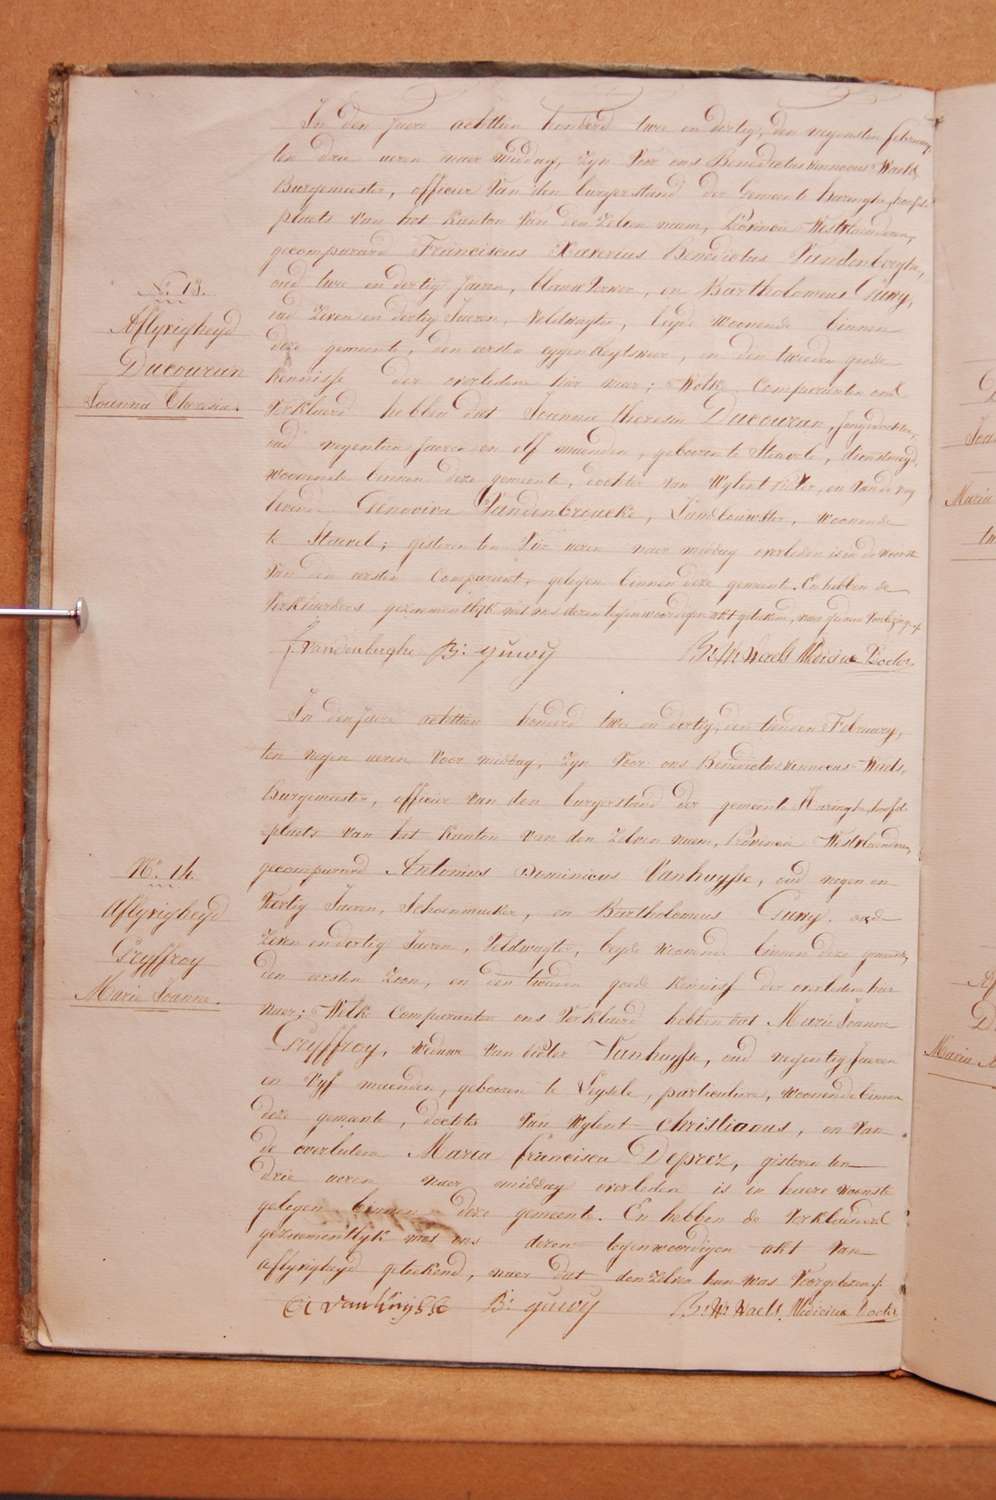 In den Jaere achttien honderd twee en dertig, den negensten february
ten drie ueren naer middag, zyn voor ons Benedictus Waels,
Burgemeester, officier van den burgerstand der Gemeente haringhe, hoofd
plaets van het kanton van den zelven naem, Provincie Westvlaenderen,
gecompareerd Franciscus Xaverius Benedictus Vandenberghe,
oud twee en dertig Jaeren, en Bartholomeus Guwy,
N.º 13.
oud zeven en dertig Jaeren, veldwagter, beyde woonende binnen
Aflyvigheyd
deze gemeente, den eersten en den tweeden goede
Ducourau
kennisse der overledene hier naer; Welke Comparanten ons
Joanna Theresia.
verklaerd hebben dat Joanna Theresia Ducouran, jongedochter,
oud negentien Jaeren en elf maenden, geboren te Stavele, dienstmeyd,
woonende binnen deze gemeente, dochter van Wylent Pieter, en van de nog
levende Genoviva Vandenbroucke, Landbouwster, woonende
te Stavel; gisteren ten vier ueren naer middag overleden is in de wooste
van den eersten Comparant, gelegen binnen deze gemeente. En hebben de
verklaerders gezamentlyk met ons dezen tegenwoordigen akt geteekend, naer
f vandenberghe B: guwy Waels Medicina Doctor
In den Jaere achttien honderd twee en dertig, den tienden February,
ten negen ueren voor middag, zyn voor ons Benedictus Waels,
Burgemeester, officier van den burgerstand der gemeente Haringhe, hoofd
plaets van het kanton van den zelven naem, Provincie Westvlaenderen,
Nº 14.
gecompareerd Antonius Dominicus Vanhuysse, oud negen en
Aflyvigheyd
veertig Jaeren, Schoenmaeker, en Bartholomeus Guwy, oud
Gryffroy
zeven en dertig Jaeren, Veldwagter, beyde woonende binnen deze gemeente,
Marie Joanne.
den eersten Zoon, en den tweeden goede kennisse der overledene hier
naer; Welke Comparanten ons verklaerd hebben dat Marie Joanne
Gryffroy, weduwe van Pieter Vanhuysse, oud negentig Jaeren
en vyf maenden, geboren te Leysele, particuliere, woonende binnen
deze gemeente, dochter van Wylent Christianus, en van
de overledene Maria francisca Deproz, gisteren ten
drie ueren naer middag overleden is in haere wooste
gelegen binnen deze gemeente. En hebben de verklaerders
gezamentlyk met ons dezen tegenwoordigen akt van
aflyvigheyd geteekend, naer dat den zelven hun was voorgelezen
B: guwy Waels, Medicina Doctor
Maria
Maria